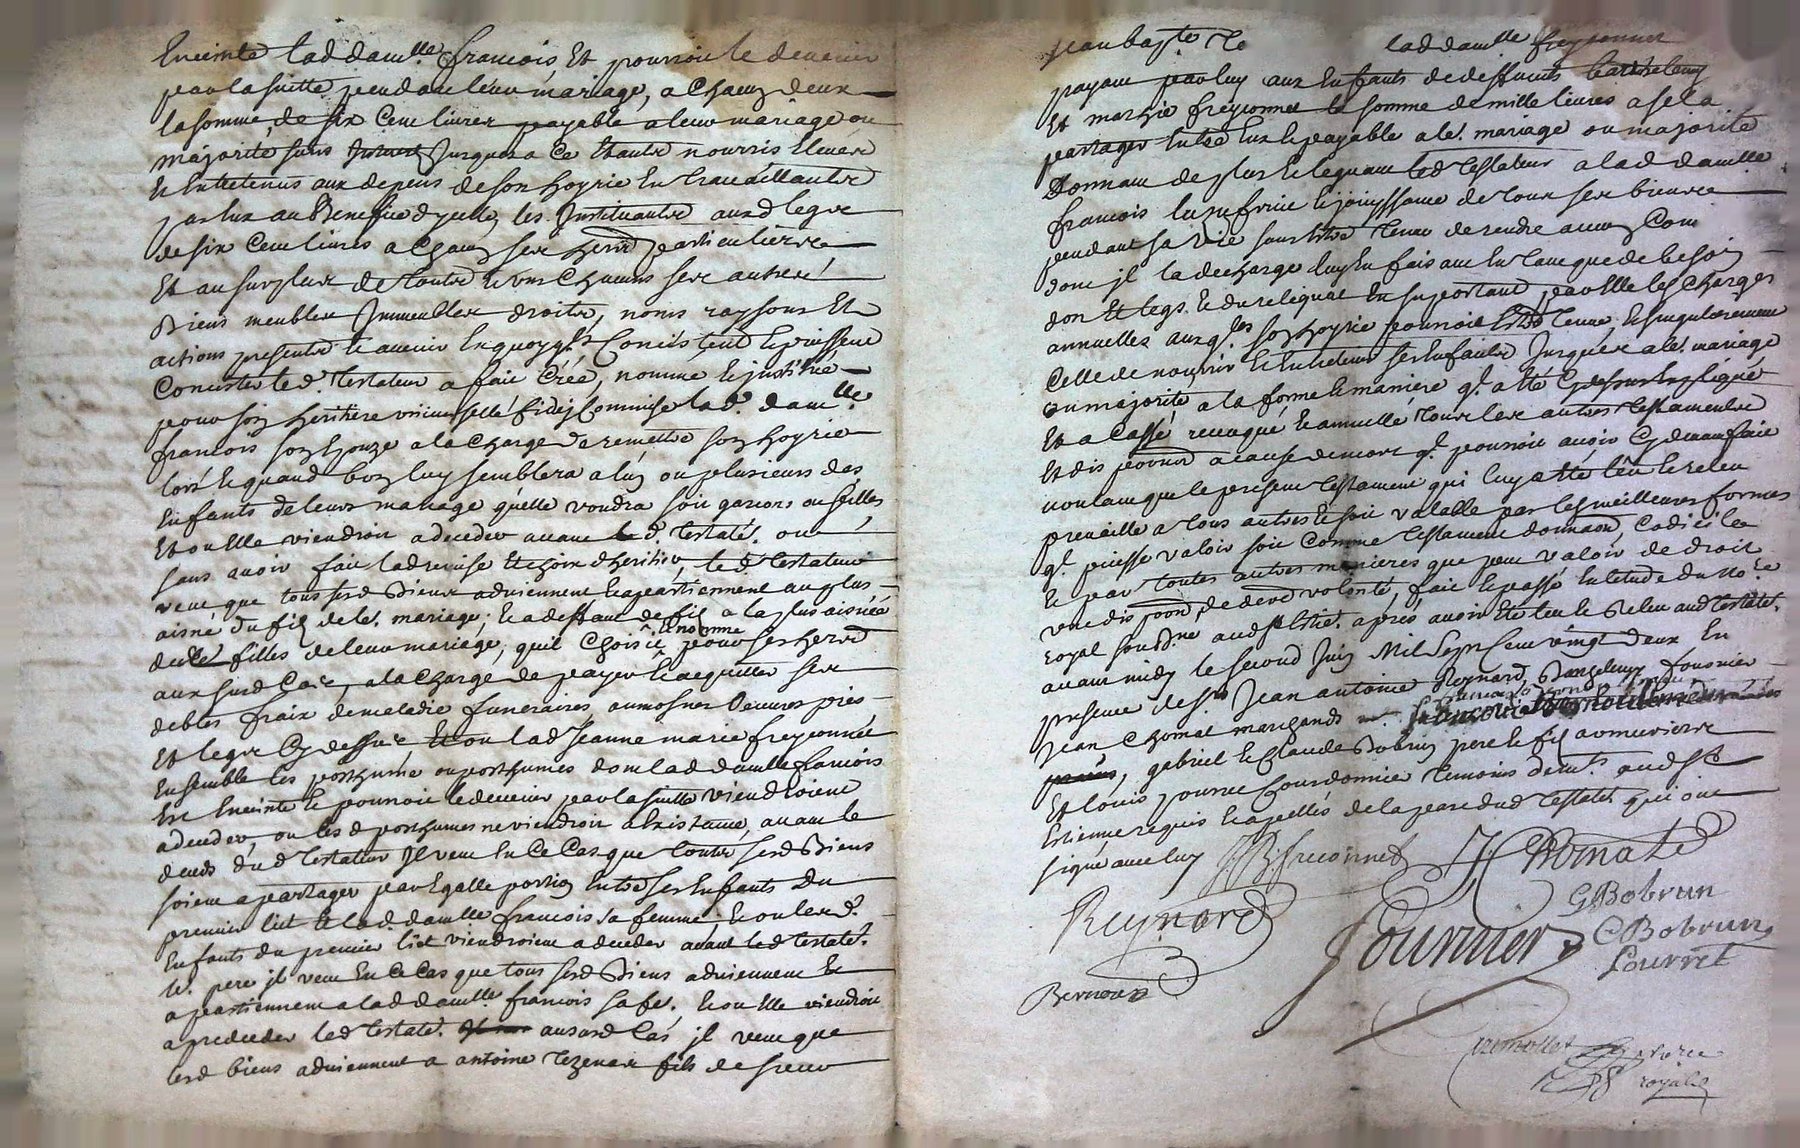 Enceinte lad damlle francois Et pourroit le devenir
par la suitte pendant leur mariage, a chacun deux
la somme de six Cent livres payable a leur mariage ou
majorité sans Jusques a Ce Estantre nourris Eleves
Et Entretenus aux depens de son hoyrie En travaillantre
par Eux au Benefice dycelle, les Instituantre auxd legre
de six Cent livres a chacun ses hers particulierre
Et au surplus de toutre Et uns chacuns ses autres
Biens meubles Immeubles droits, noms raysons Et
actions presents Et avenir En quoy qls Consistent Et puissent
Consister led. testateur a fait Créé, nommé Et institué
pour son heritiere universelle fideicommise lad. damlle
francois son Epouze a la charge de remettre son hoyrie
lors Et quand bon luy semblera a lun ou plusieurs des
Enfants de leur mariage quelle voudra soit garcons ou filles
Et ou Elle viendroit a deceder avant le d. testatr. ou
sans avoir fait lad remise Et choix dheritier, le d testateur
veut que tous sesd Biens adviennent Et apartiennent au plus
aisné du fils de lr. mariage; Et a deffaut de fils a la plus aisnée
des filles de leur mariage, quil choisit Et nomme pour ses herrs
aux susd Cas, a la charge de payer Et acquitter ses
debtes fraix de maladie funeraires aumosnes Oeuvres pies
Et legs Cy dessus Et ou lad Jeanne marie freyconnet
Ensemble les posthume ou posthumes dont lad damlle francois
Est Enceinte Et pourroit le devenir par la suitte viendroient
a deceder, ou les d posthumes ne viendroit a Existance, avant le
deceds dud testateur Il veut En Ce Cas que toutre sesd Biens
soient a partager par Egalle portion Entre ses Enfants du
premier lict Et lad. damlle francois sa femme; Et ou lesd.
Enfants du premier lict viendroient a deceder avant led testatr.
lr. pere il veut En Ce Cas que tous sesd Biens adviennent Et
apartiennent a lad damlle francois sa fe. Et ou Elle viendroit
a predeceder led testatr. ausurd Cas il veut que
lesd biens adviennent a antoine tezenas fils de sieur
Jean bapte te lad damlle freyconnet
payant par luy aux Enfants de deffuncts barthelemy
Et marie freyconnet la somme de mille livres a se la
partager Entre Eux Et payable a lr. mariage ou majorité
Donnant de plus Et leguant led testateur a lad damlle
francois lusufruit Et jouyssance de tous ses biens
pendant sa vie sans Estre tenue de rendre aucun Com
dont il la decharge luy En fais ant En tant que de besoin
don Et legs Et du reliquat En suportant par Elle les charges
annuelles auxqls son hoyrie pourroit Estre tenue, Et singulierement
Celle de nourrir Et Entretenir ses Enfants Jusques a lr. mariage
ou majorité a la forme Et maniere ql a Eté Cy dessus Expliqué
Et a Cassé revoqué Et annullé tous les autres testamentre
Et dis pōōns a cause de mort ql pourroit avoir Cy devant fait
voulant que le present testament qui luy a Eté leu Et releu
prevaille a tous autres Et soit valable par les meilleures formes
ql puisse valoir soit Comme testament donnaon, codicille
Et par toutes autres manieres que peut valoir de droit
une dis pōōn de derre volonté, fait Et passé En letude du nore
royal soussne aud st Etie. aprés avoir Eté leu Et Releu aud testatr.
avant midy le second Juin Mil Sept Cent vingt deux En
presence de srs Jean antoine Reynard, Barthelemy fournier
Jean Chomat marchands
gabriel Et Claude Bobrun pere Et fils armuriers
Et Louis pourret fourdonnier temoins demts. aud st
Etienne requis Et apellés de la part dud testatr qui ont
signé avec luy JB freiconnet JChomate
Reynard fournier GBobrun
CBobrun
Bernou Pourret
royal